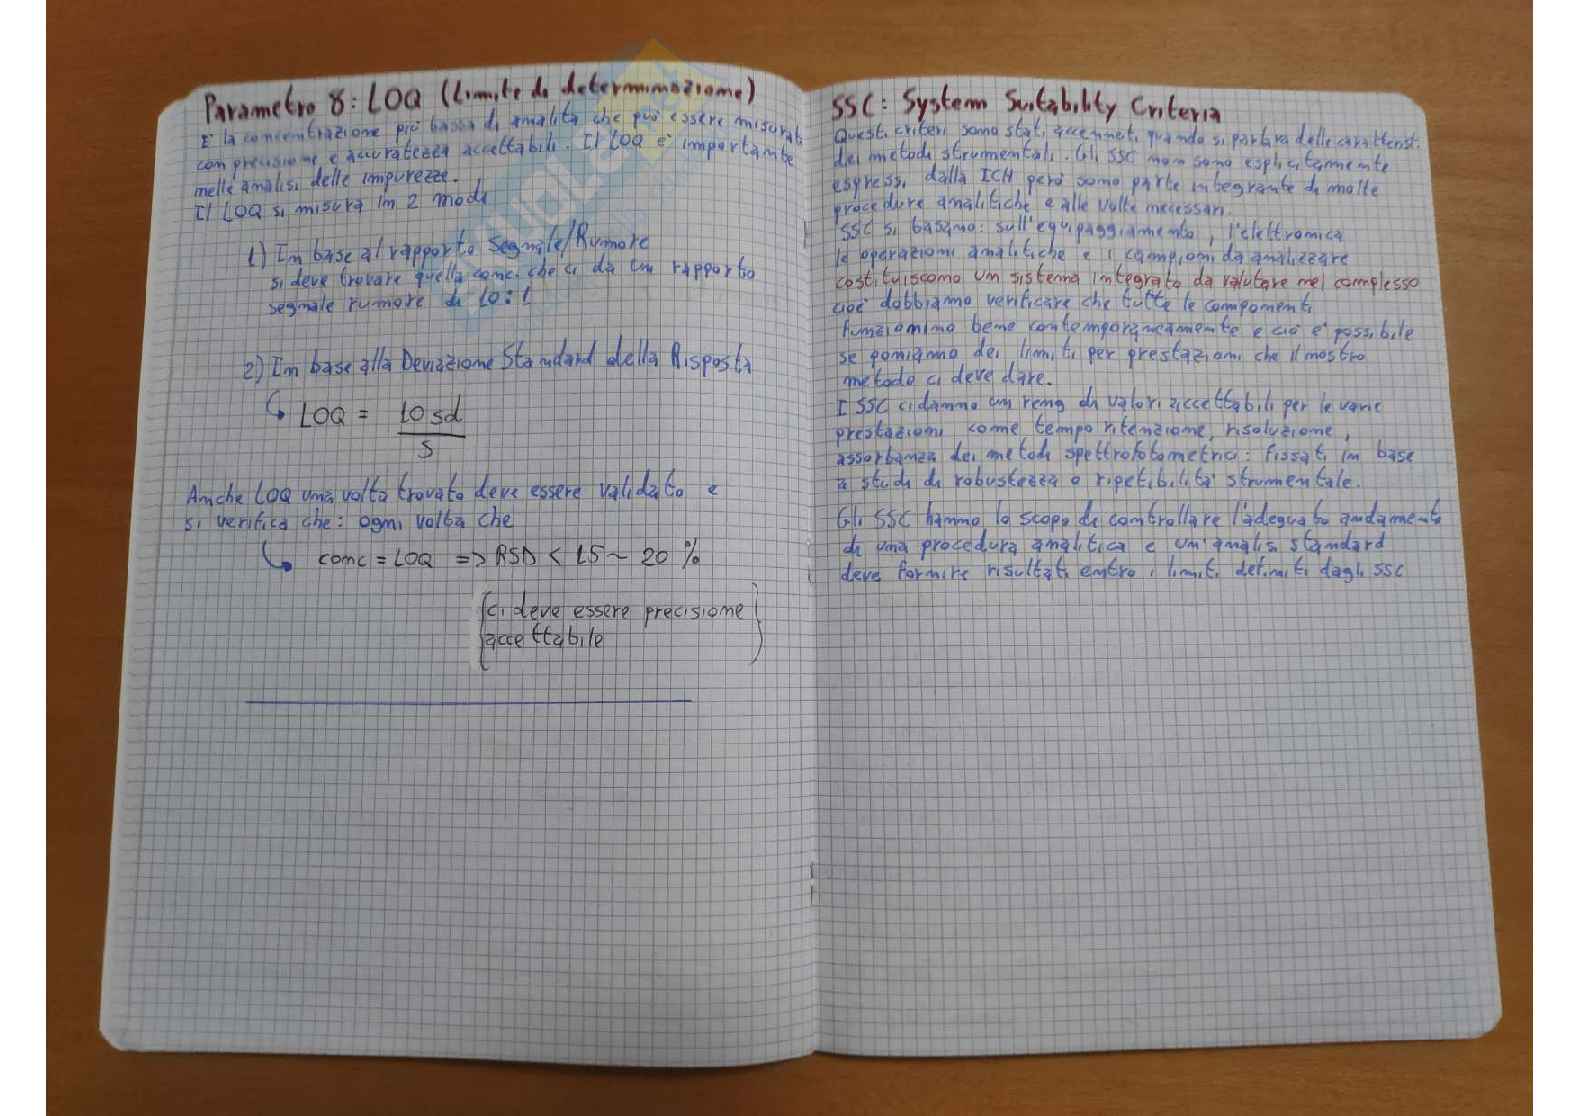 Parametro 8: LOQ (Limite di determinazione)
È la concentrazione più bassa di analita che può essere misurata
con precisione e accuratezza accettabili. Il LOQ è importante
nelle analisi delle impurezze.
Il LOQ si misura in 2 modi
1) In base al rapporto Segnale/Rumore
si deve trovare quella conc. che ci da un rapporto
segnale rumore di 10:1
2) In base alla Deviazione Standard della Risposta
LOQ = 10 sd
S
Anche LOQ una volta trovato deve essere validato e
si verifica che: ogni volta che
conc = LOQ => RSD < 15 ~ 20 %
(ci deve essere precisione
accettabile)
SSC: System Suitability Criteria
Questi criteri sono stati accennati quando si parlava delle caratterist.
dei metodi strumentali. Gli SSC non sono esplicitamente
espressi dalla ICH però sono parte integrante di molte
procedure analitiche e alle volte necessari.
SSC si basano: sull'equipaggiamento, l'elettronica
le operazioni analitiche e i campioni da analizzare
costituiscono un sistema integrato da valutare nel complesso
cioè dobbiamo verificare che tutte le componenti
funzionino bene contemporaneamente e ciò è possibile
se poniamo dei limiti per prestazioni che il nostro
metodo ci deve dare.
I SSC ci danno un reng di valori accettabili per le varie
prestazioni come tempo ritenzione, risoluzione,
assorbanza dei metodi spettrofotometrici: fissati in base
a studi di robustezza o ripetibilità strumentale.
Gli SSC hanno lo scopo di controllare l'adeguato andamento
di una procedura analitica e un'analisi standard
deve fornire risultati entro i limiti definiti dagli SSC